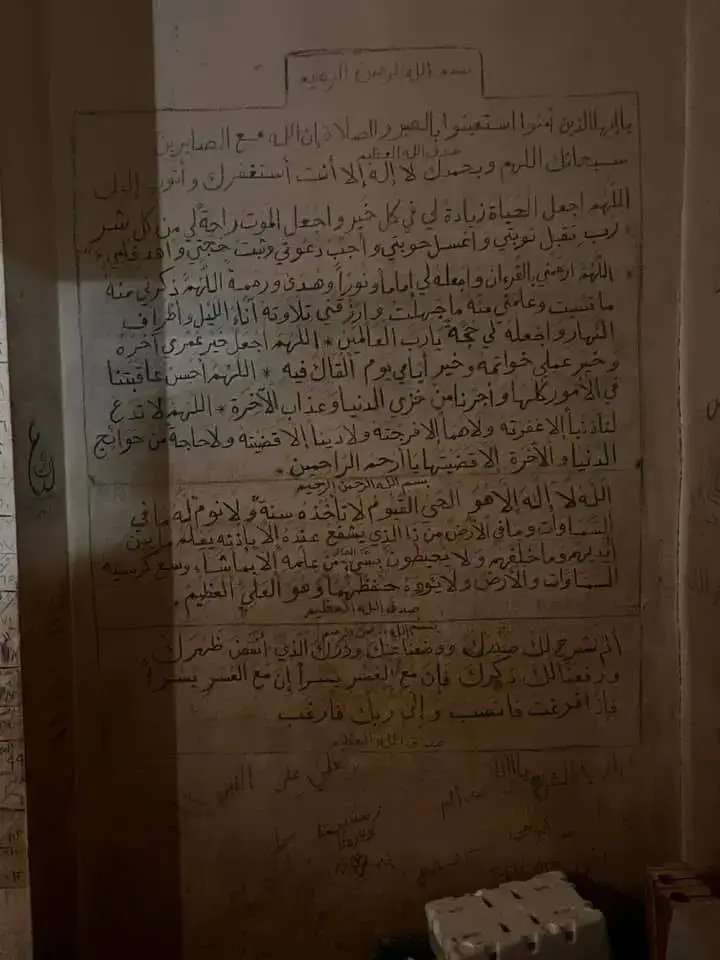 بسم الله الرحمن الرحيم
يا ايها الذين آمنوا استعينوا بالصبر والصلاة إن الله مع الصابرين
صدق الله العظيم
سبحانك اللهم وبحمدك لا إله إلا أنت أستغفرك وأتوب إليك
اللهم اجعل الحياة زيادة لي في كل خير واجعل الموت راحة لي من كل شر
رب تقبل توبتي واغسل حوبتي وأجب دعوتي وثبت حجتي واهد قلبي
* اللهم ارحمني بالقرءان واجعله لي إماما ونوراً وهدى ورحمة اللهم ذكرني منه
ما نسيت وعلمني منه ما جهلت وارزقني تلاوته آناء الليل وأطراف
النهار واجعله لي حجة يارب العالمين * اللهم اجعل خير عمري آخره
وخير عملي خواتمه وخير أيامي يوم ألقاك فيه * اللهم أحسن عاقبتنا
في الأمور كلها وأجرنا من خزي الدنيا وعذاب الآخرة * اللهم لا تدع
لنا ذنباً إلا غفرته ولا هما إلا فرجته ولا دينا إلا قضيته ولا حاجة من حوائج
الدنيا والآخرة إلا قضيتها يا أرحم الراحمين .
بسم الله الرحمن الرحيم
الله لا إله إلا هو الحي القيوم لا تأخذه سنة ولا نوم له ما في
السماوات وما في الأرض من ذا الذي يشفع عنده إلا بإذنه يعلم ما بين
أيديهم وما خلفهم ولا يحيطون بشيء من علمه إلا بما شاء وسع كرسيه
السماوات والأرض ولا يئوده حفظهما وهو العلي العظيم .
صدق الله العظيم
بسم الله الرحمن الرحيم
ألم نشرح لك صدرك ووضعنا عنك وزرك الذي أنقض ظهرك
ورفعنا لك ذكرك فإن مع العسر يسراً إن مع العسر يسراً
فإذا فرغت فانصب وإلى ربك فارغب
صدق الله العظيم